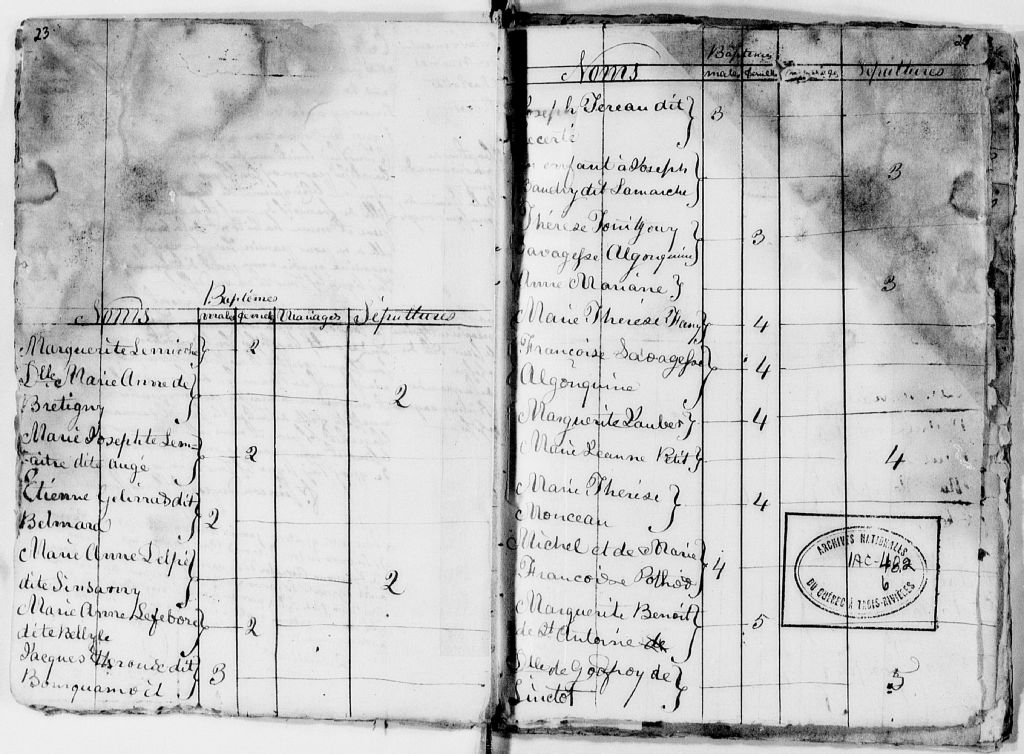 23
Baptêmes
Noms males femel Mariages Sépultures
Marguerite 2
Dlle Marie Anne de
Bretigny 2
Marie Josephte Lem-
aitre dite augé 2
Etienne Gelinas dit
Belmard 2
Marie Anne
dite Sinsanny 2
Marie Anne Lefebvre
dite Bellyle 2
Jacques dit
3
24
Baptemes
Noms males femelle mariages Sépultures
Joseph Tereau dit 3
enfant à Joseph
Baudry dit Lamarche 3
Thérèse
Savagesse Algonquine 3
Anne Mariane 3
Marie Thérèse 4
Françoise Savagesse
Algonquine 4
Marguerite 4
Marie Jeanne Petit 4
Marie Therese
Monceau 4
Michel et de Marie
Francoise 4
Marguerite Benoit
de St Antoine de 5
Dlle de Godfroy de
Linctot 5
ARCHIVES NATIONALES
1AC-482
6
DU QUÉBEC À TROIS-RIVIÈRES